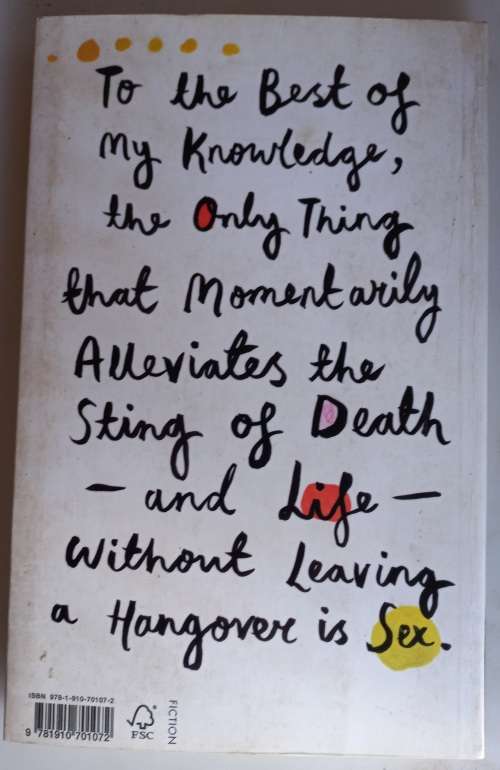 To the Best of
My Knowledge,
the Only Thing
that Momentarily
Alleviates the
Sting of Death
— and Life —
Without Leaving
a Hangover is Sex.
ISBN 978-1-910-70107-2
9 781910 701072
FSC
FICTION